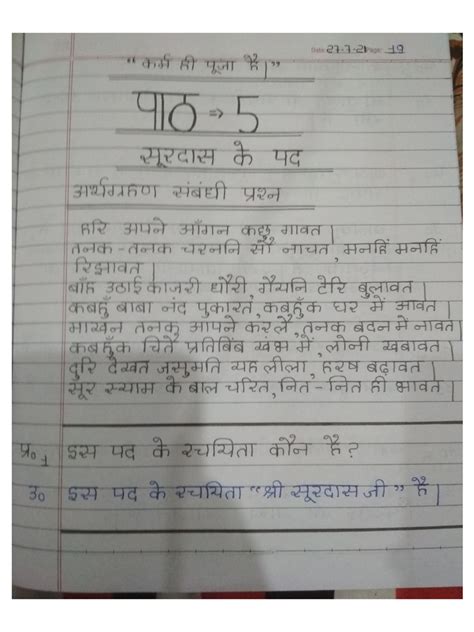 Date 27-7-21 Page: 19
"कर्म ही पूजा है।"
पाठ ⇒ 5
सूरदास के पद
अर्थग्रहण संबंधी प्रश्न
हरि अपने आँगन कछु गावत।
तनक-तनक चरननि सौं नाचत, मनहिं मनहिं
रिझावत।
बाँह उठाई काजरी धौरी, गैयनि टेरि बुलावत।
कबहुँ बाबा नंद पुकारत, कबहुँक घर में आवत।
माखन तनक आपने करलै, तनक बदन में नावत।
कबहुँक चितै प्रतिबिंब खंभ में, लोनी खबावत।
दुरि देखत जसुमति यह लीला, हरष बढ़ावत।
सूर स्याम के बाल चरित, नित-नित ही भावत।
प्र० 1 इस पद के रचयिता कौन है?
उ० इस पद के रचयिता "श्री सूरदास जी" है।